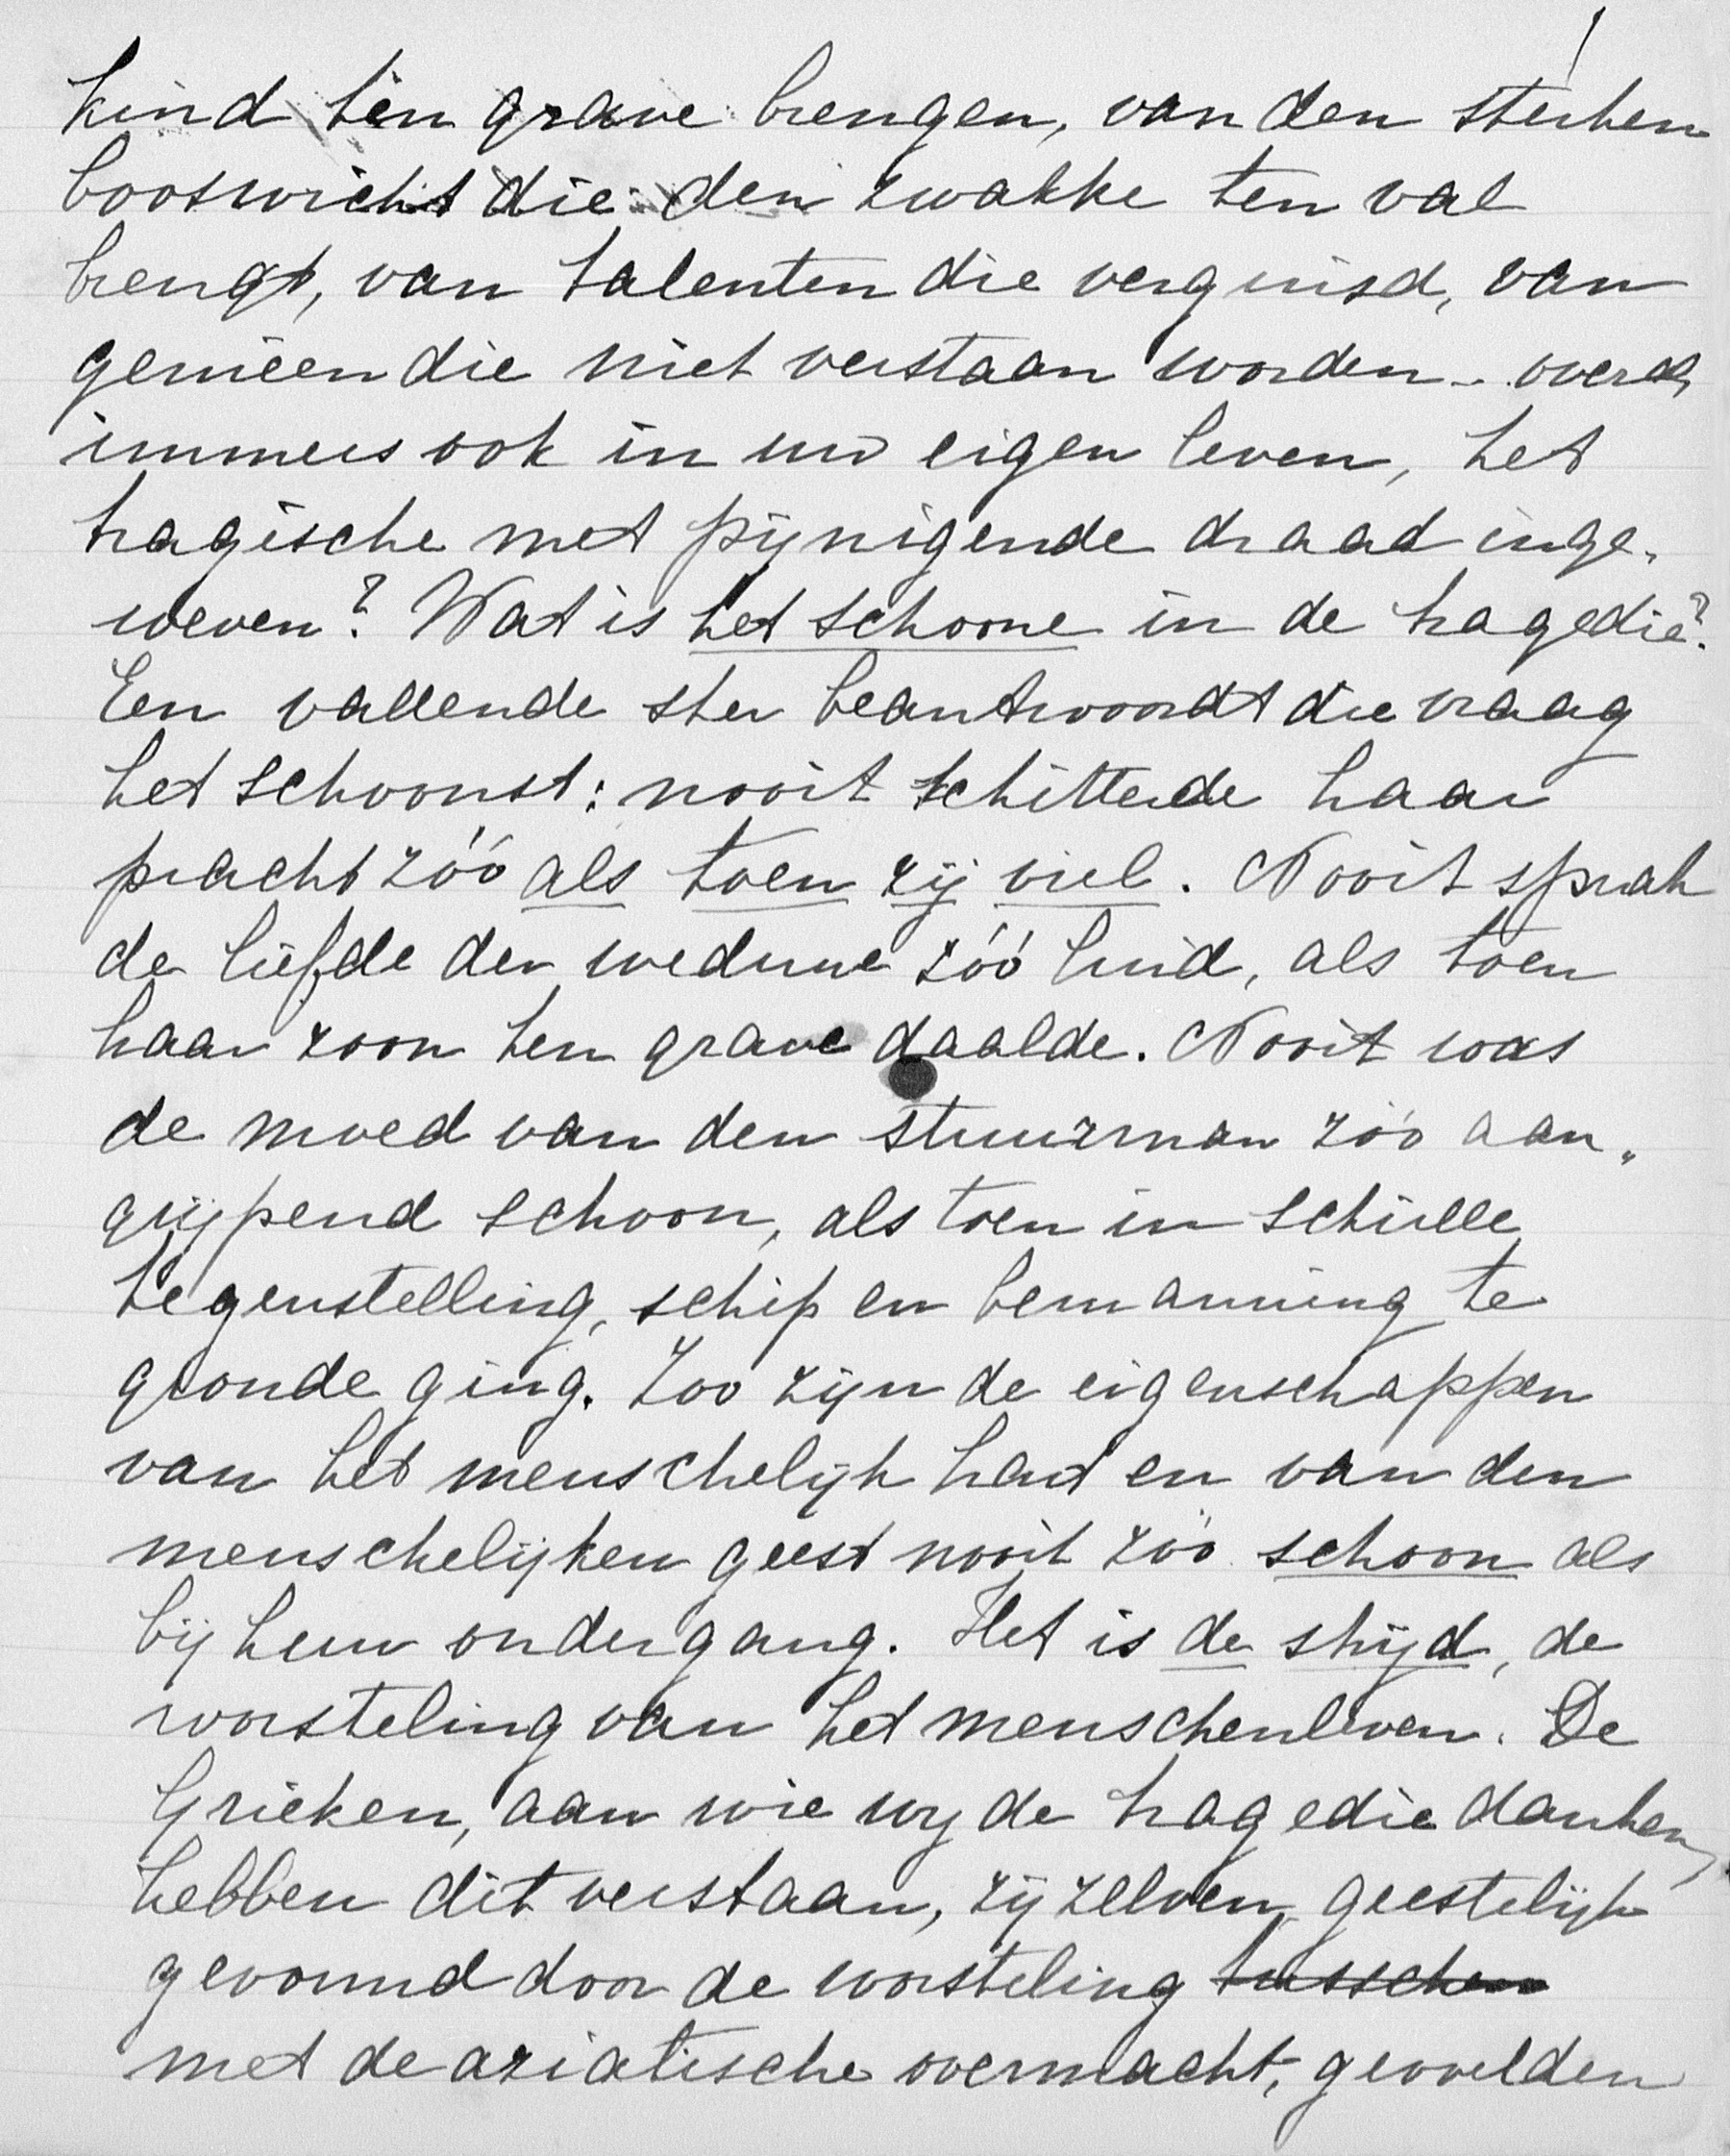 kind ten grave brengen, van den sterken
booswicht die den zwakke ten val
brengt, van talenten die verguisd, van
genieën die niet verstaan worden - overal,
immers ook in uw eigen leven, het
tragische met pijnigende draad inge-
weven? Wat is het schoone in de tragedie?
Een vallende ster beantwoordt die vraag
het schoonst: nooit schitterde haar
pracht zóó als toen zij viel. Nooit sprak
de liefde der weduwe zóó luid, als toen
haar zoon ten grave daalde. Nooit was
de moed van den stuurman zóó aan-
grijpend schoon, als toen in schrille
tegenstelling, schip en bemanning te
gronde ging. Zoo zijn de eigenschappen
van het menschelijk hart en van den
menschelijken geest nooit zóó schoon als
bij hun ondergang. Het is de strijd, de
worsteling van het menschenleven. De
Grieken, aan wie wij de tragedie danken,
hebben dit verstaan, zij zelven geestelijk
gevormd door de worsteling tusschen
met de aziatische overmacht, gevoelden